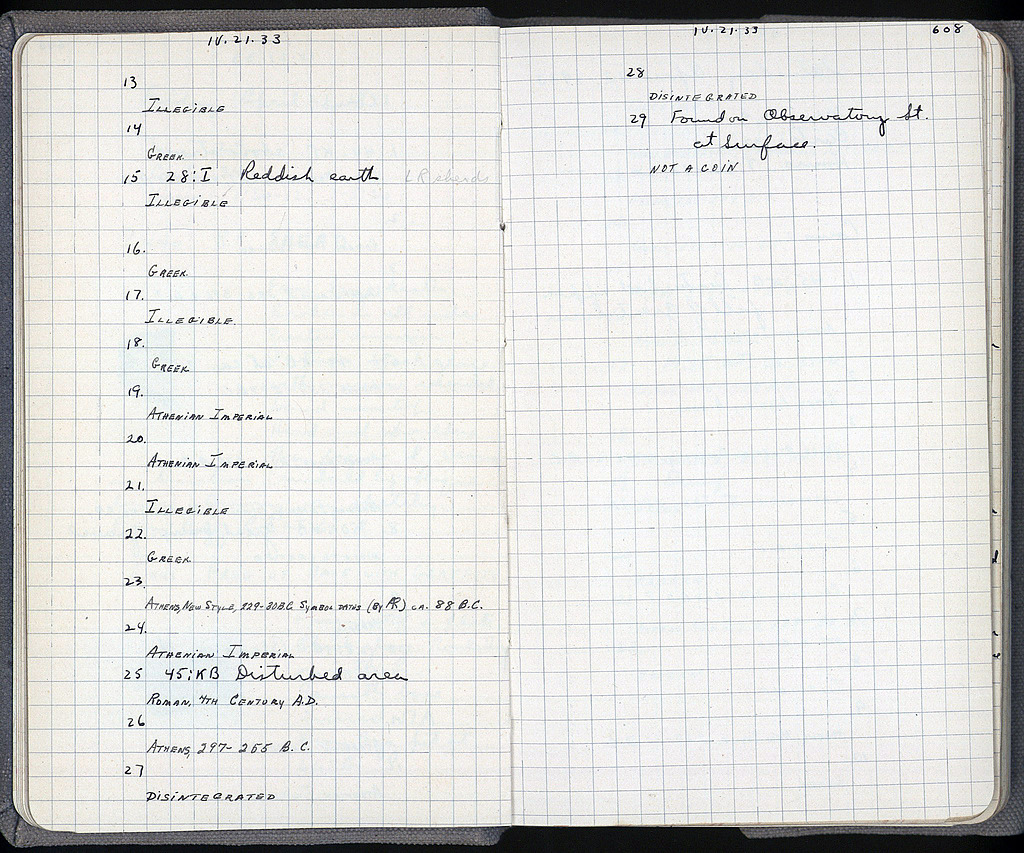 IV.21.33
13
ILLEGIBLE
14
GREEK.
15 28:I Reddish earth LR sherds
ILLEGIBLE
16.
GREEK.
17.
ILLEGIBLE.
18.
GREEK
19.
ATHENIAN IMPERIAL
20.
ATHENIAN IMPERIAL
21.
ILLEGIBLE
22.
GREEK
23.
ATHENS, NEW STYLE, 229-30 B.C. SYMBOL DATES (BY AR) CA. 88 B.C.
24.
ATHENIAN IMPERIAL
25 45:KB Disturbed area
ROMAN, 4TH CENTURY A.D.
26
ATHENS, 297-255 B.C.
27
DISINTEGRATED
IV.21.33 608
28
DISINTEGRATED
29 Found on Observatory St.
at surface.
NOT A COIN